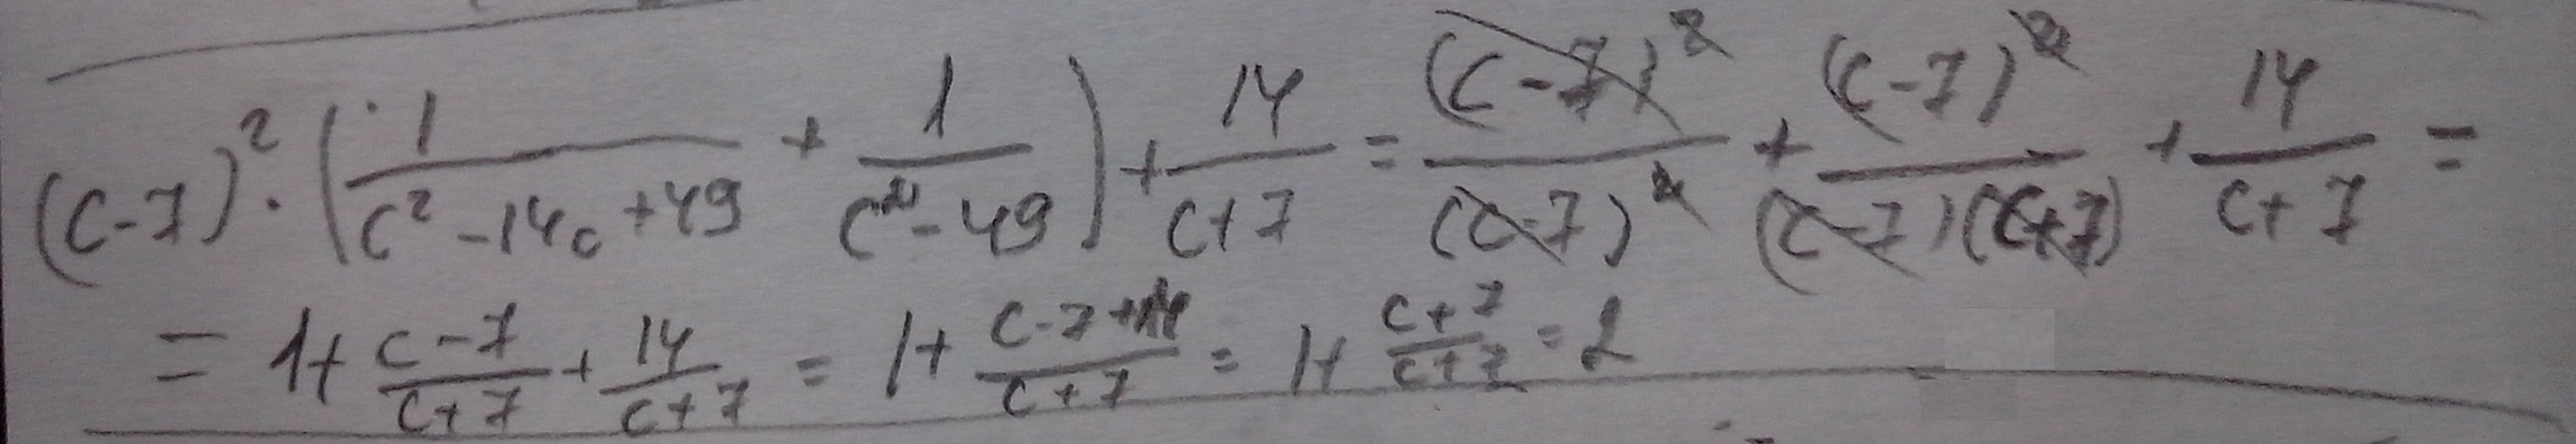 (c-7)²·(1/(c²-14c+49) + 1/(c²-49)) + 14/(c+7) = (c-7)²/(c-7)² + (c-7)²/((c-7)(c+7)) + 14/(c+7) =
= 1 + (c-7)/(c+7) + 14/(c+7) = 1 + (c-7+14)/(c+7) = 1 + (c+7)/(c+7) = 2